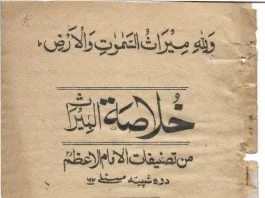 وَلِلّٰهِ مِيْرَاثُ السَّمٰوٰتِ وَالْاَرْضِ ط
خُلاصَة المِيْرَاث
من تصنيفات الامام الاعظمؒ